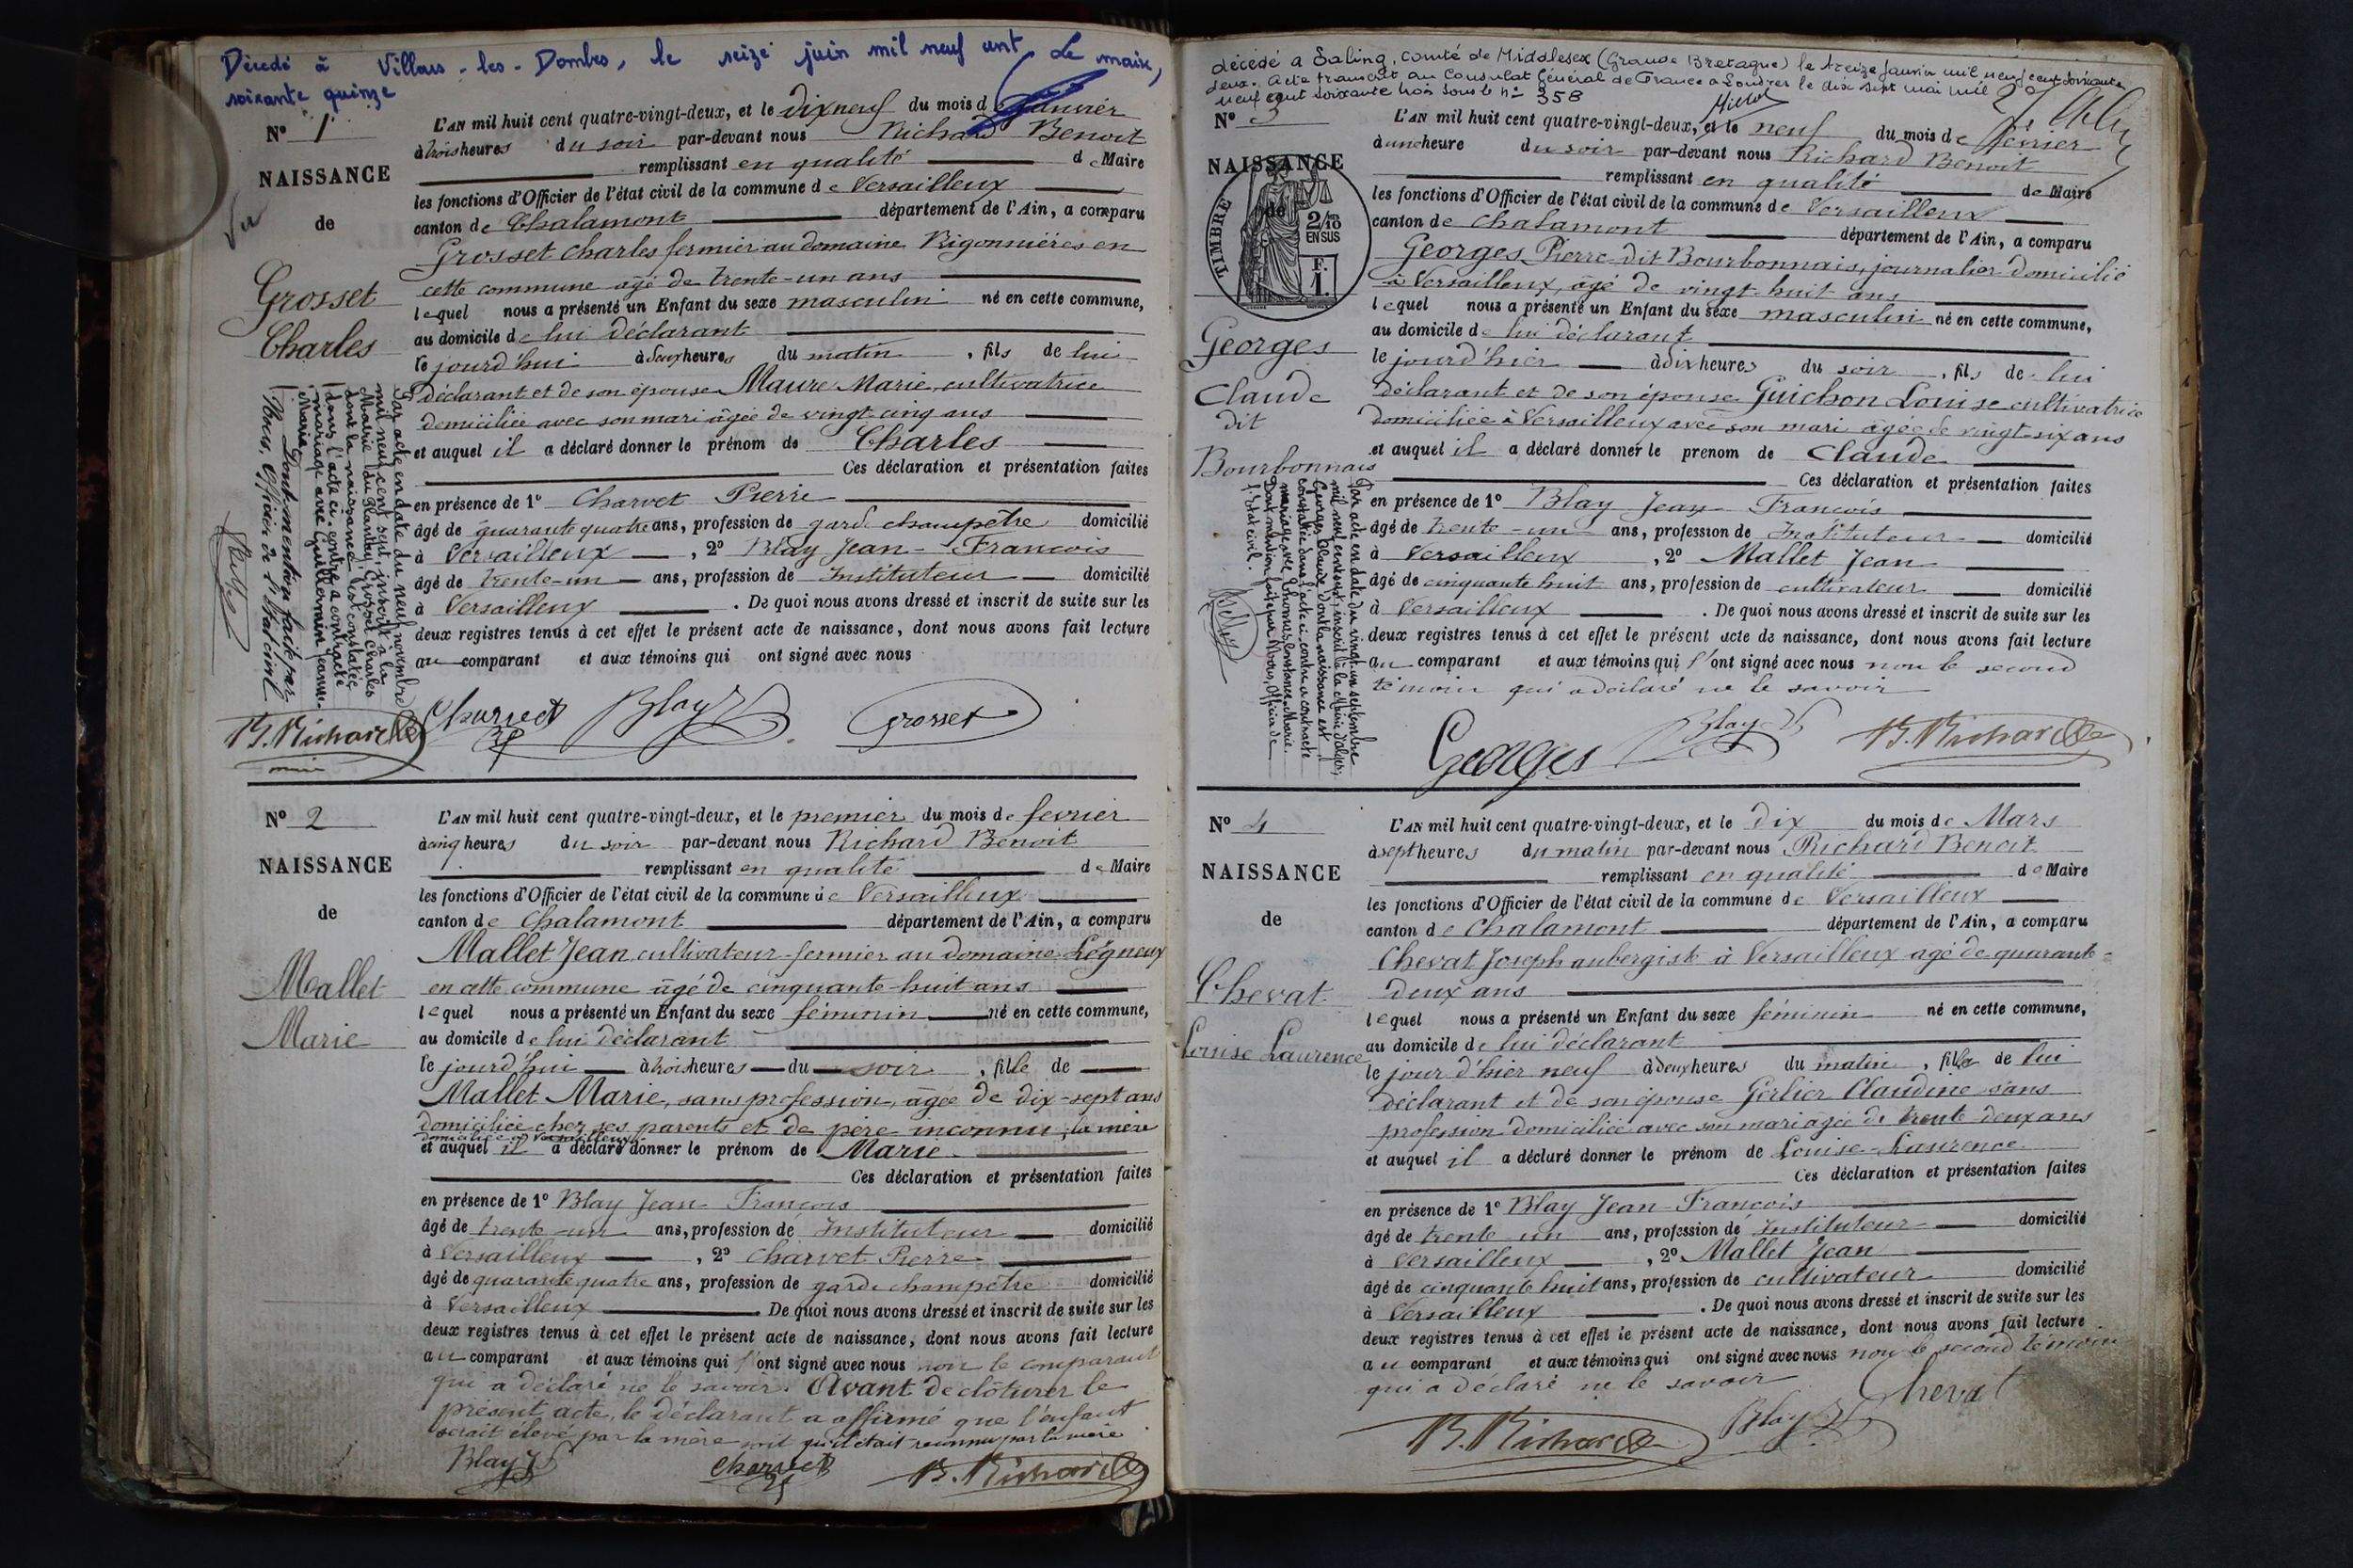 Décédé à Villars-les-Dombes, le seize juin mil neuf cent Le maire,
soixante quinze
Nº 1
NAISSANCE
de
Vu
Grosset
Charles
L'AN mil huit cent quatre-vingt-deux, et le dix neuf du mois de Janvier
à trois heures du soir par-devant nous Richard Benoit
remplissant en qualité de Maire
les fonctions d'Officier de l'état civil de la commune de Versailleux
canton de Chalamont département de l'Ain, a comparu
Grosset Charles fermier au domaine Rigonnières en
cette commune âgé de trente-un ans
lequel nous a présenté un Enfant du sexe masculin né en cette commune,
au domicile de lui déclarant
le jourd'hui à deux heures du matin, fils de lui
déclarant et de son épouse Maure Marie, cultivatrice
domiciliée avec son mari âgée de vingt cinq ans
et auquel il a déclaré donner le prénom de Charles
Ces déclaration et présentation faites
en présence de 1º Charvet Pierre
âgé de quarante quatre ans, profession de garde champêtre domicilié
à Versailleux, 2º Blay Jean-François
âgé de trente-un ans, profession de Instituteur domicilié
à Versailleux. De quoi nous avons dressé et inscrit de suite sur les
deux registres tenus à cet effet le présent acte de naissance, dont nous avons fait lecture
au comparant et aux témoins qui ont signé avec nous
Par acte en date du neuf novembre
mil neuf cent sept, inscrit à la
Mairie du Plantay, Grosset Charles
dont la naissance est constatée
dans l'acte ci-contre a contracté
mariage avec Guillermin Jeanne-
Marie.
Dont mention faite par
Nous, Officier de l'Etat civil
B. Richard
maire
Charvet Blay Grosset
Nº 2
NAISSANCE
de
Mallet
Marie
L'AN mil huit cent quatre-vingt-deux, et le premier du mois de fevrier
à cinq heures du soir par-devant nous Richard Benoit
remplissant en qualité de Maire
les fonctions d'Officier de l'état civil de la commune de Versailleux
canton de Chalamont département de l'Ain, a comparu
Mallet Jean, cultivateur-fermier au domaine Légneux
en cette commune âgé de cinquante-huit ans
lequel nous a présenté un Enfant du sexe féminin né en cette commune,
au domicile de lui déclarant
le jourd'hui à trois heures du soir, fille de
Mallet Marie, sans profession, âgée de dix-sept ans
domiciliée chez ses parents et de père inconnu; la mère
domiciliée à Versailleux
et auquel il a déclaré donner le prénom de Marie
Ces déclaration et présentation faites
en présence de 1º Blay Jean François
âgé de trente-un ans, profession de Instituteur domicilié
à Versailleux, 2º Charvet Pierre
âgé de quarante quatre ans, profession de garde champêtre domicilié
à Versailleux. De quoi nous avons dressé et inscrit de suite sur les
deux registres tenus à cet effet le présent acte de naissance, dont nous avons fait lecture
au comparant et aux témoins qui l'ont signé avec nous non le comparant
qui a déclaré ne le savoir. Avant de clôturer le
présent acte, le déclarant a affirmé que l'enfant
serait élevé par la mère soit qu'il était reconnu par la mère
Blay Charvet B. Richard
décédé à Ealing, comté de Middlesex (Grande Bretagne) le treize Janvier mil neuf cent soixante
deux. Acte transcrit au Consulat Général de France à Londres le dix sept mai mil
neuf cent soixante trois sous le nº 358
Nº 3
NAISSANCE
de
TIMBRE
2/10
EN SUS
F.
1.
Georges
Claude
dit
Bourbonnais
L'AN mil huit cent quatre-vingt-deux, et le neuf du mois de février
à une heure du soir par-devant nous Richard Benoit
remplissant en qualité de Maire
les fonctions d'Officier de l'état civil de la commune de Versailleux
canton de Chalamont département de l'Ain, a comparu
Georges Pierre dit Bourbonnais, journalier domicilié
à Versailleux, âgé de vingt-huit ans
lequel nous a présenté un Enfant du sexe masculin né en cette commune,
au domicile de lui déclarant
le jourd'hier à dix heures du soir, fils de lui
déclarant et de son épouse Guichon Louise cultivatrice
domiciliée à Versailleux avec son mari âgée de vingt-six ans
et auquel il a déclaré donner le prenom de Claude
Ces déclaration et présentation faites
en présence de 1º Blay Jean François
âgé de trente-un ans, profession de Instituteur domicilié
à Versailleux, 2º Mallet Jean
âgé de cinquante huit ans, profession de cultivateur domicilié
à Versailleux. De quoi nous avons dressé et inscrit de suite sur les
deux registres tenus à cet effet le présent acte de naissance, dont nous avons fait lecture
au comparant et aux témoins qui l'ont signé avec nous non le second
témoin qui a déclaré ne le savoir
Par acte en date du vingt-un septembre
mil neuf cent sept, inscrit à la Mairie
Georges Claude dont la naissance est
constatée dans l'acte ci-contre a contracté
mariage avec Constance Marie
Dont mention faite par Nous, Officier de
l'Etat civil.
Georges Blay B. Richard
Nº 4
NAISSANCE
de
Chevat
Louise Laurence
L'AN mil huit cent quatre-vingt-deux, et le dix du mois de Mars
à sept heures du matin par-devant nous Richard Benoit
remplissant en qualité de Maire
les fonctions d'Officier de l'état civil de la commune de Versailleux
canton de Chalamont département de l'Ain, a comparu
Chevat Joseph aubergiste à Versailleux agé de quarante-
deux ans
lequel nous a présenté un Enfant du sexe féminin né en cette commune,
au domicile de lui déclarant
le jour d'hier neuf à deux heures du matin, fille de lui
déclarant et de son épouse Gerlier Claudine sans
profession domiciliée avec son mari agée de trente deux ans
et auquel il a déclaré donner le prénom de Louise-Laurence
Ces déclaration et présentation faites
en présence de 1º Blay Jean-François
âgé de trente un ans, profession de Instituteur domicilié
à Versailleux, 2º Mallet Jean
âgé de cinquante huit ans, profession de cultivateur domicilié
à Versailleux. De quoi nous avons dressé et inscrit de suite sur les
deux registres tenus à cet effet le présent acte de naissance, dont nous avons fait lecture
au comparant et aux témoins qui ont signé avec nous non le second témoin
qui a déclaré ne le savoir
Chevat
B. Richard Blay